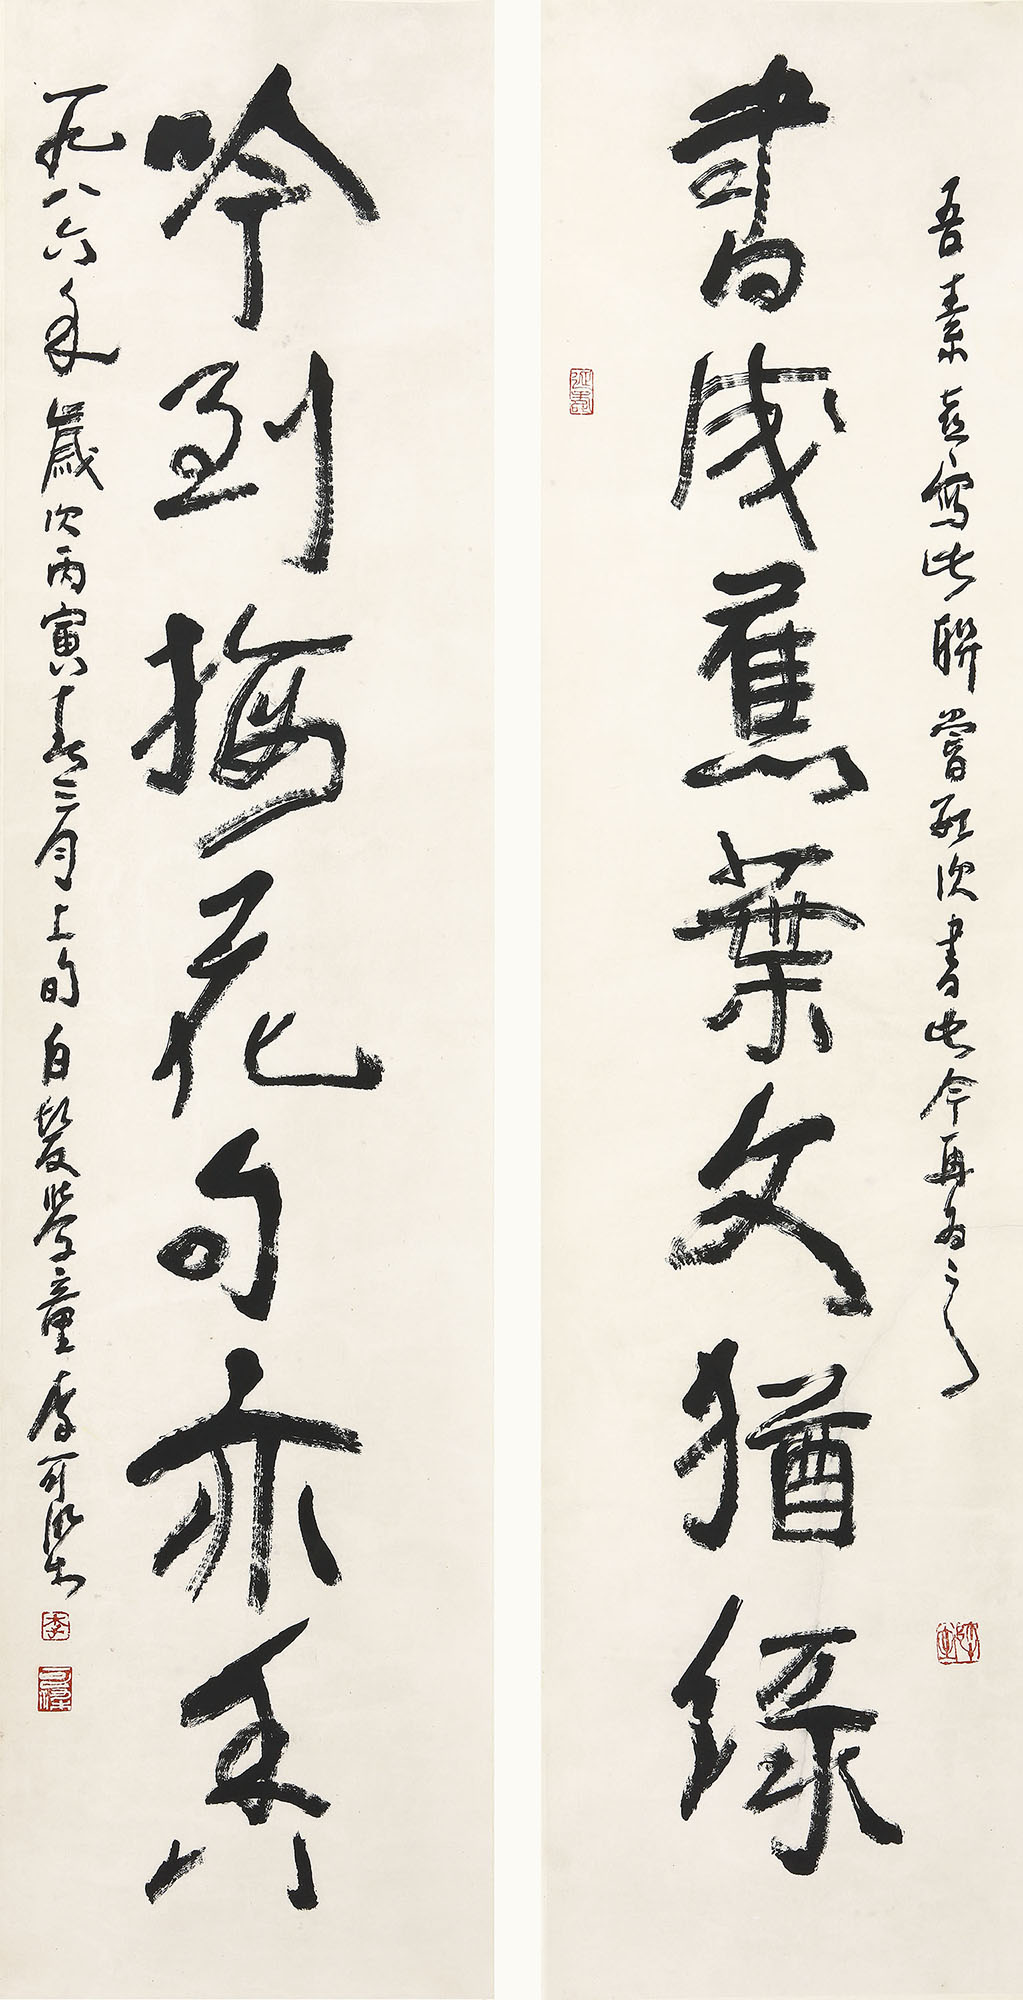 吾素喜寫此聯嘗數次書此今再為之
書成蕉葉文猶綠
吟到梅花句亦香
一九八六年歲次丙寅春三月上旬白髮學童李可染
李
可染